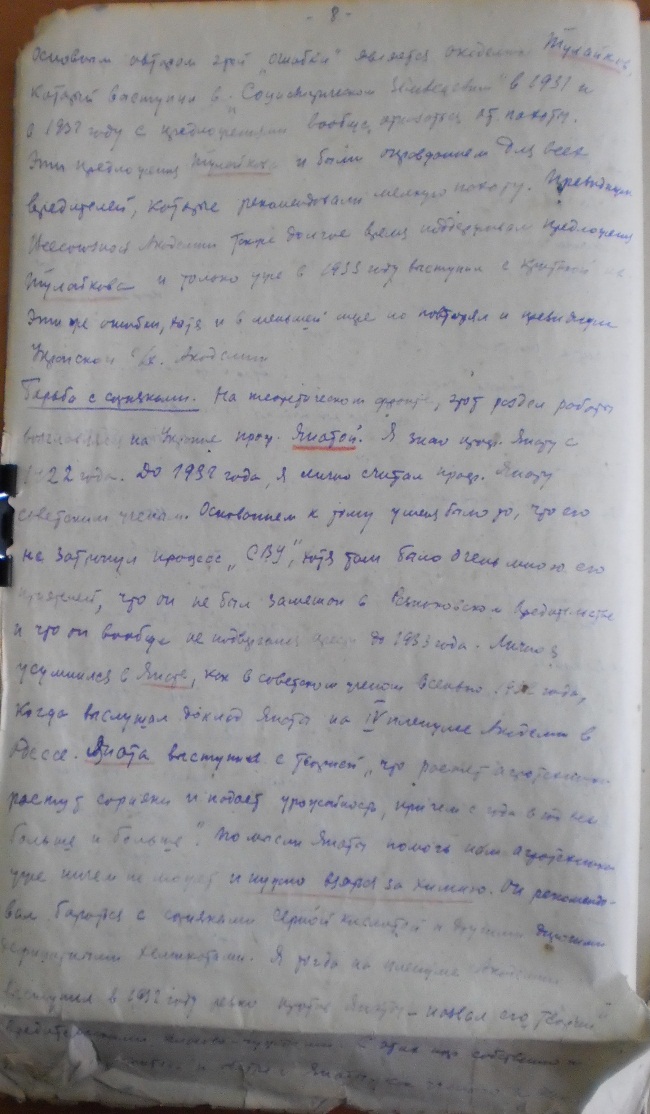 - 8 -
Основным автором этой "ошибки" является академик Тулайков,
который выступил в "Социалистическом Земледелии" в 1931 и
в 1932 году с предложениями вообще отказаться от пахоты.
Эти предложения Тулайкова и были оправданием для всех
вредителей, которые рекомендовали мелкую пахоту. Президиум
Всесоюзной Академии также долгое время поддерживал предложения
Тулайкова и только уже в 1933 году выступил с критикой
Эти же ошибки, хотя и в меньшей мере повторял и президиум
Украинской с/х. Академии
Борьба с сорняками. На теоретическом фронте, этот раздел работы
возглавлялся на Украине проф. Янатой. Я знаю проф. Янату с
1922 года. До 1932 года, я лично считал проф. Янату
советским ученым. Основанием к тому у меня было то, что его
не затронул процесс "СВУ", хотя там было очень много его
приятелей, что он не был замешан в вредительстве
и что он вообще не подвергался до 1933 года. Лично я
усумнился в Янате, как в советском ученом осенью 1932 года,
когда выслушал доклад Янаты на IV пленуме Академии в
Одессе. Яната выступил с теорией, "что растет агротехника
растут сорняки и падает урожайность, причем с года в год все
больше и больше". По мысли Янаты помочь нам агротехника
уже ничем не может и нужно взятся за химию. Он рекомендо-
вал боротся с сорняками серной кислотой и другими
химикатами. Я тогда на пленуме Академии
выступил в 1932 году резко против Янаты - назвал его "теорию"